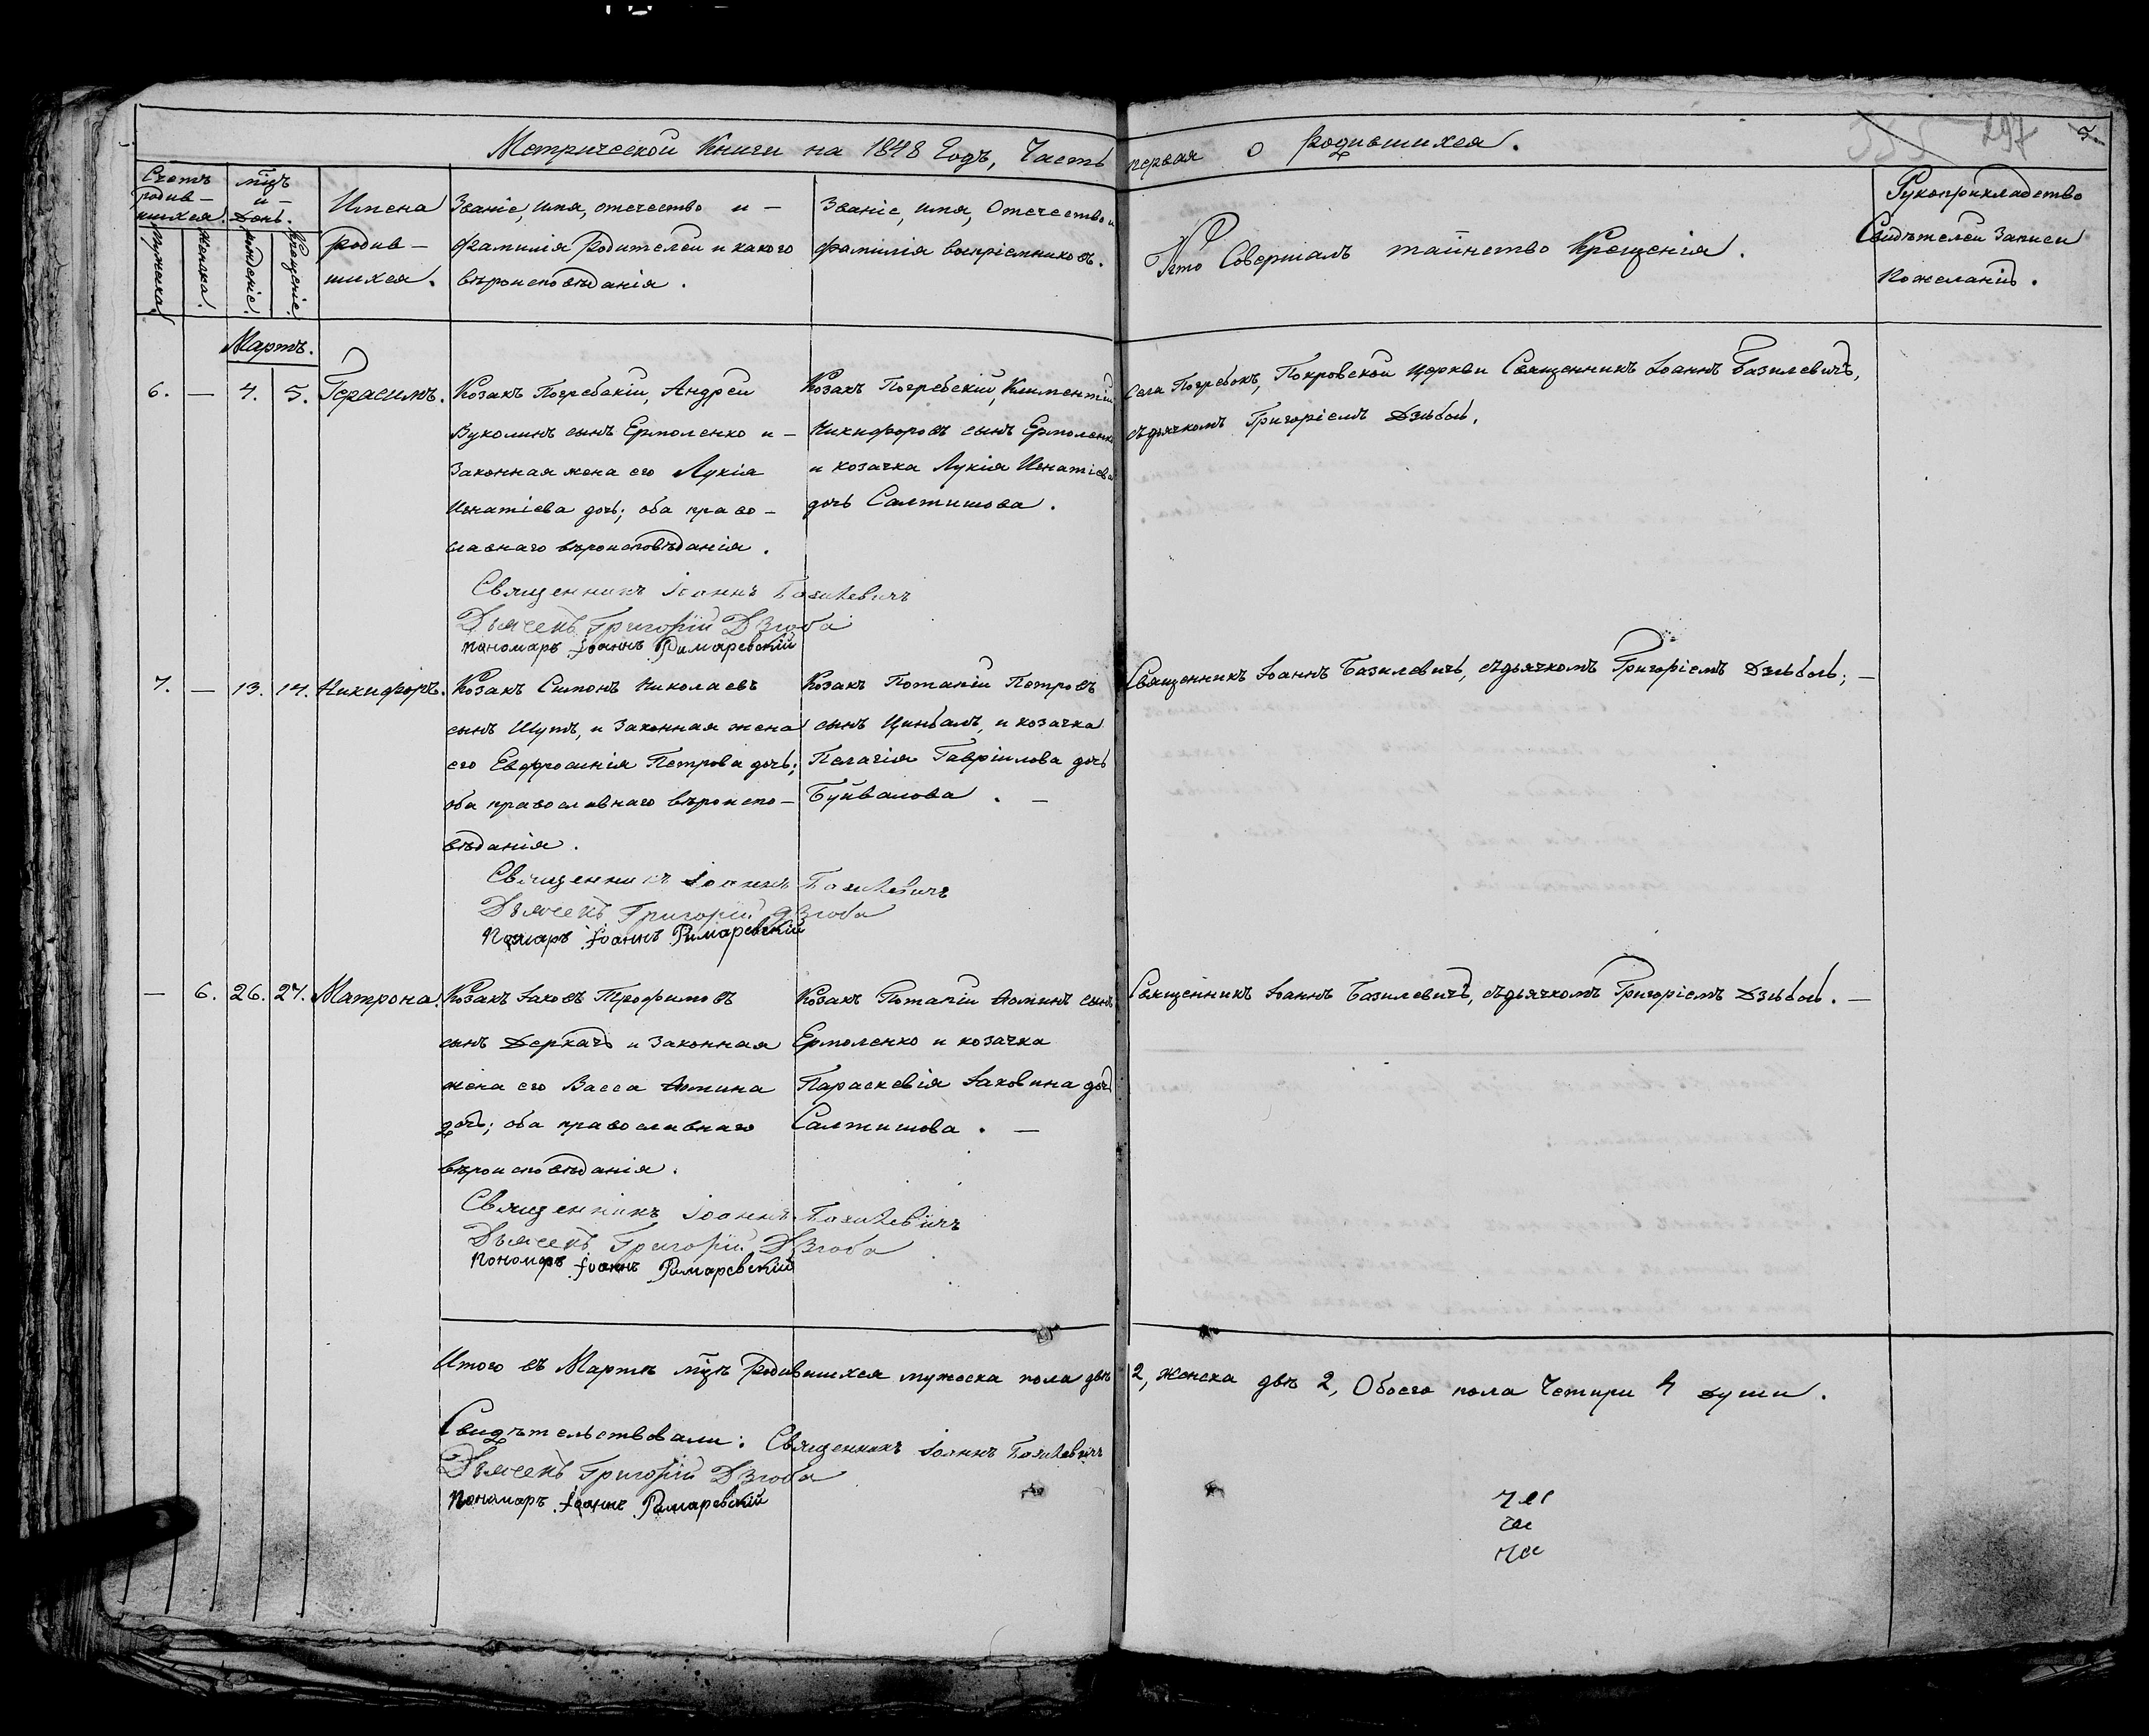 Метрической Книги на 1848 Годъ, Часть первая о родившихся.
297
Счетъ родив-шихся.
мцъ и день.
Мужеска.
Женска.
рожденіе.
Крещеніе.
Имена родив-шихся.
Званіе, имя, отечество и - фамилія Родителей и какого вѣроисповѣданія.
Званіе, имя, Отечество и фамилія воспріемниковъ.
Кто Совершалъ таинство Крещенія.
Рукоприкладство Свидѣтелей Записи По желанію.
Мартъ.
6. — 4. 5. Герасимъ.
Козакъ Погребскій, Андрей
Вуколинъ сынъ Ермоленко и -
Законная жена его Лукія
Игнатіева дочь; оба право-
славнаго вѣроисповѣданія.
Козакъ Погребскій, Климентій
Никифоровъ сынъ Ермоленко
и козачка Лукія Игнатіева
дочь Салтишова.
Села Погребокъ, Покровской церкви Священникъ Іоаннъ Базилевичъ,
съ дьячкомъ Григоріемъ Дзюбою.
Священникъ Іоаннъ Базилевичъ
Дьячекъ Григорій Дзюба
Пономаръ Іоаннъ Римаревскій
7. — 13. 14. Никифоръ.
Козакъ Симонъ Николаевъ
сынъ Шутъ, и Законная жена
его Евфросинія Петрова дочь;
оба православнаго вѣроиспо-
вѣданія.
Козакъ Потапій Петровъ
сынъ Цинбалъ, и козачка
Пелагія Гавріилова дочь
Буйвалова. —
Священникъ Іоаннъ Базилевичь, съ дьячкомъ Григоріемъ Дзюбою; —
Священникъ Іоаннъ Базилевичъ
Дьячекъ Григорій Дзюба
Помаръ Іоаннъ Римаревскій
— 6. 26. 27. Матрона.
Козакъ Іаковъ Трофимовъ
сынъ Деркачъ и Законная
жена его Васса
дочь; оба православнаго
вѣроисповѣданія.
Козакъ Потапій сынъ
Ермоленко и козачка
Параскевія Іаковина дочь
Салтишова. —
Священникъ Іоаннъ Базилевичъ, съ дьячкомъ Григоріемъ Дзюбою. —
Священникъ Іоаннъ Базилевичъ
Дьячекъ Григорій Дзюба
Пономаръ Іоаннъ Римаревскій
Итого въ Мартѣ мцѣ Родившихся мужеска пола двѣ 2, женска двѣ 2, Обоего пола Четири 4 души.
Свидѣтельствовали: Священникъ Іоаннъ Базилевичъ
Дьячекъ Григорій Дзюба
Пономаръ Іоаннъ Римаревскій